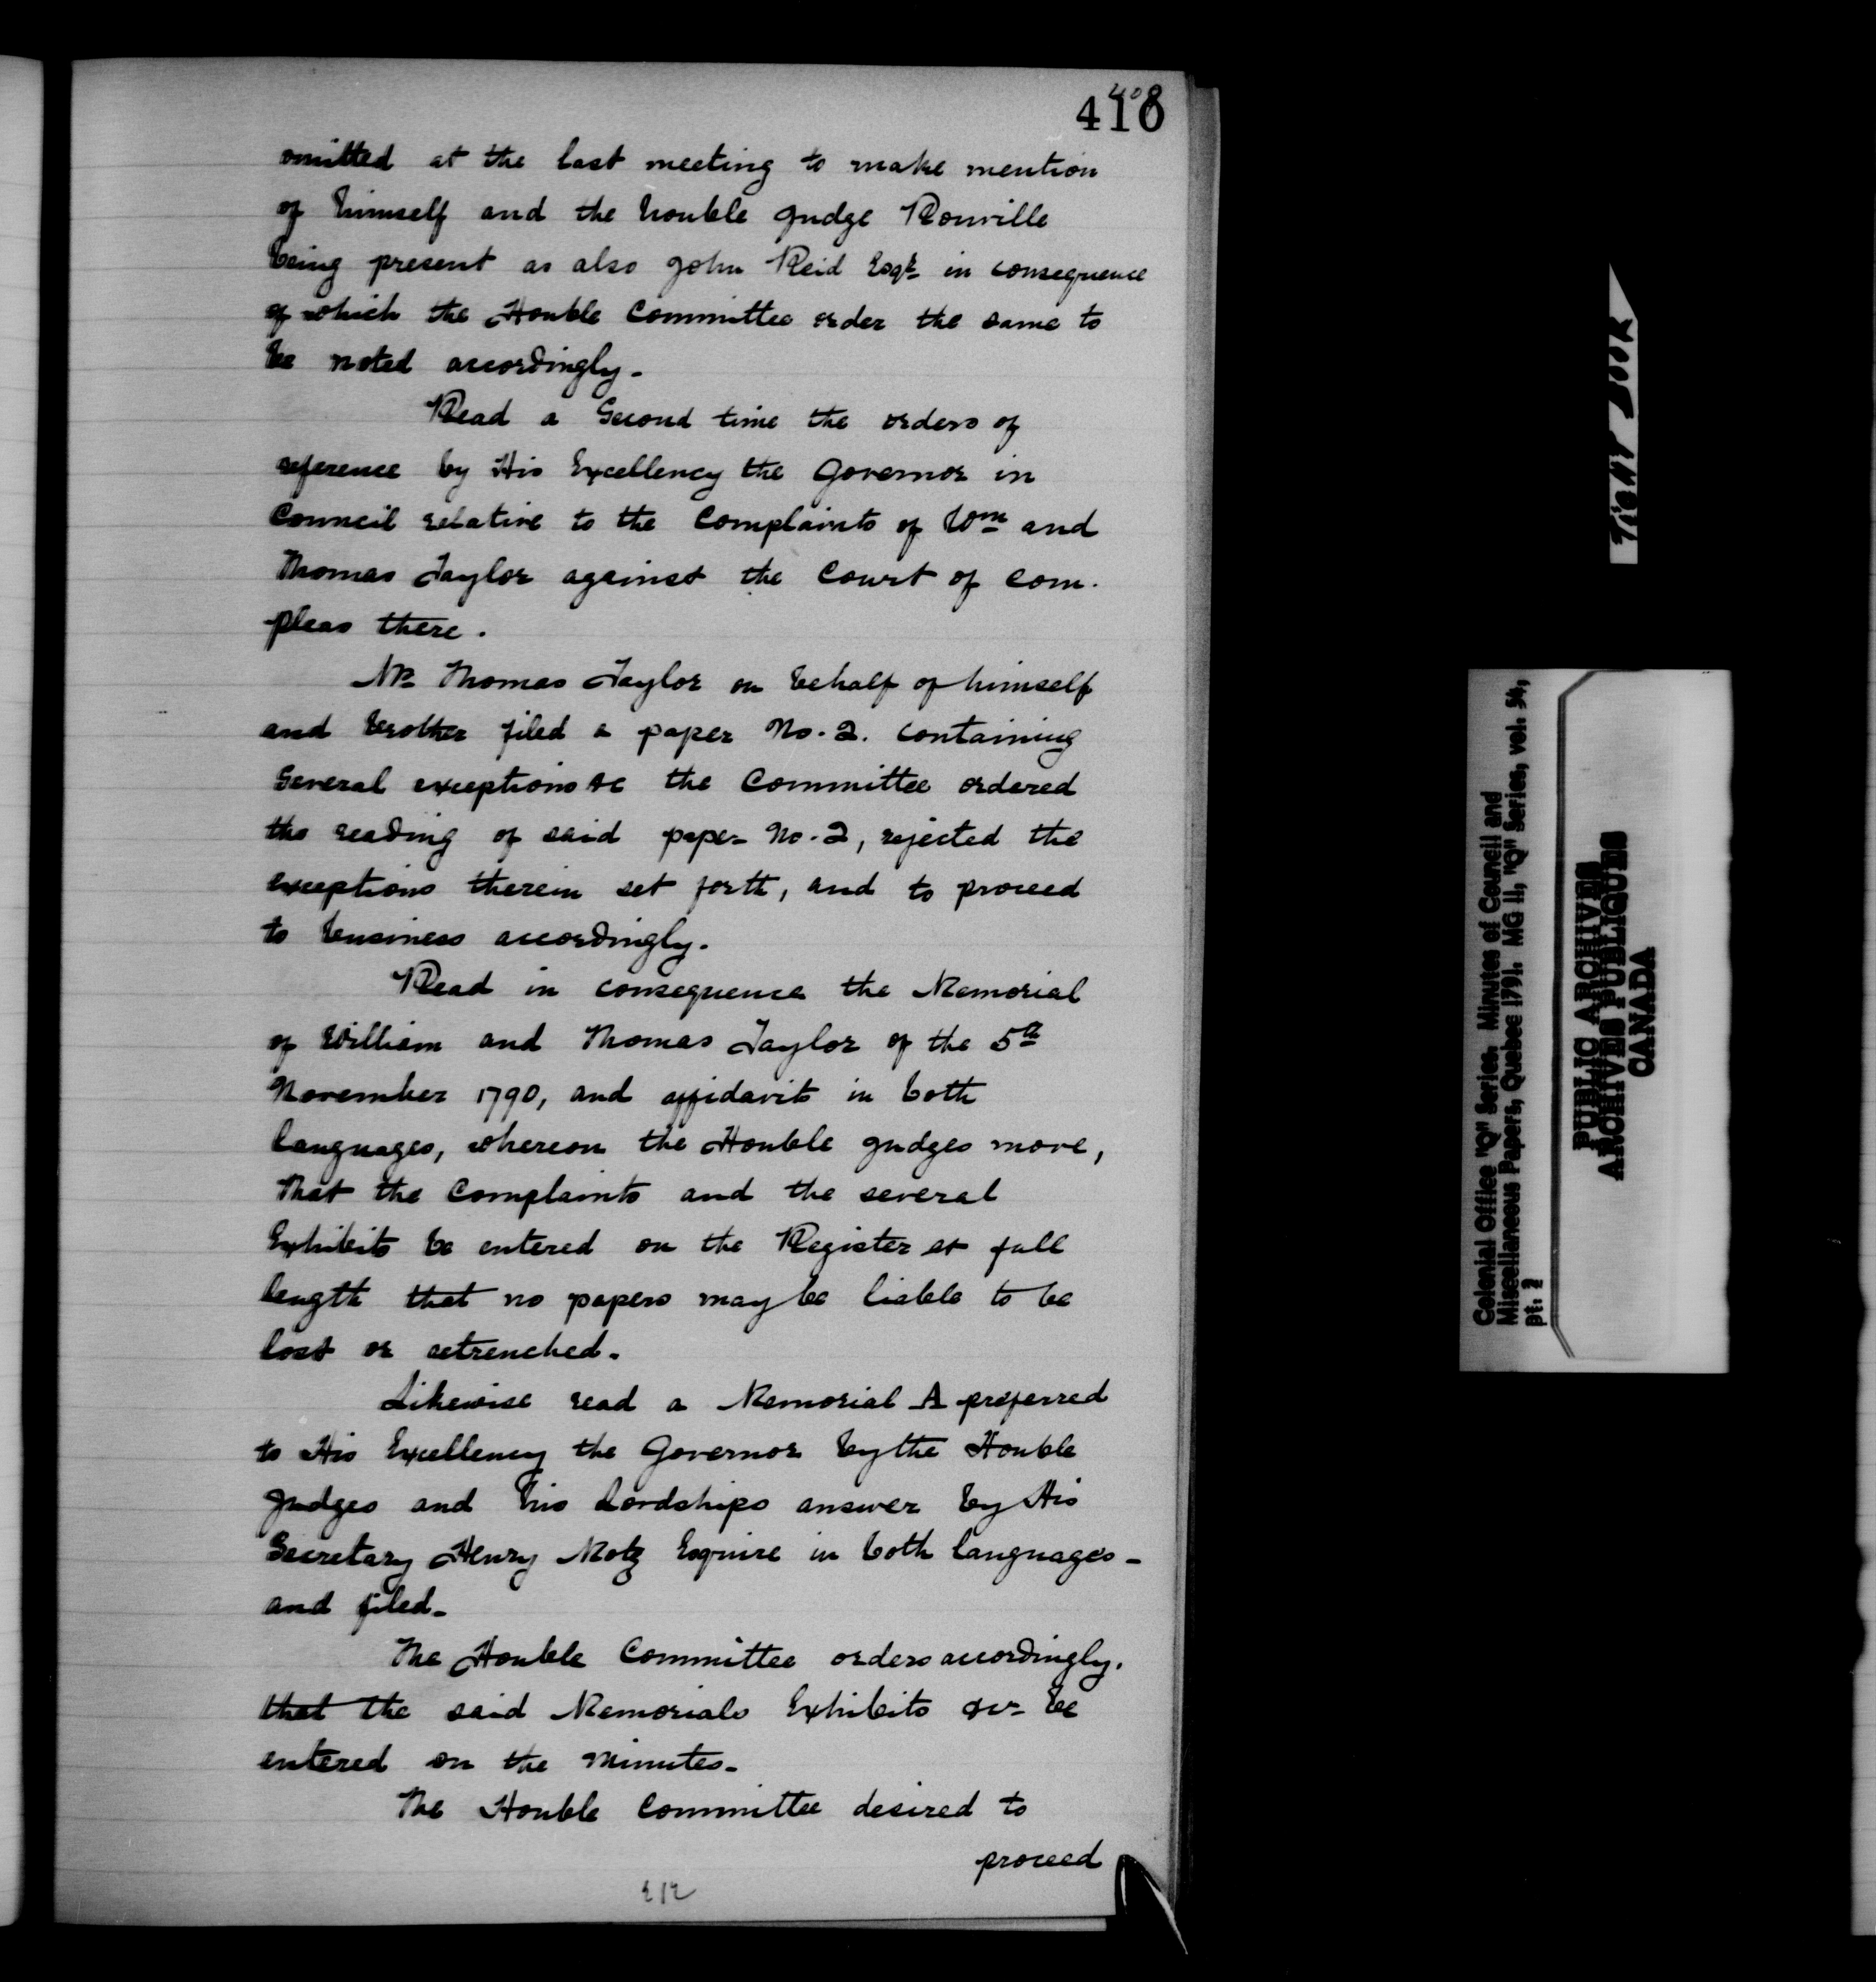 408
410
omitted at the last meeting to make mention
of himself and the honble Judge Rouville
being present as also John Reid Esqr in consequence
of which the Honble Committee order the same to
be noted accordingly-
Read a Second time the orders of
reference by His Excellency the Governor in
Council relative to the Complaints of Wm and
Thomas Taylor against the Court of Com.
pleas there.
Mr Thomas Taylor on behalf of himself
and brother filed a paper No. 2. containing
Several exceptions &c the Committee ordered
the reading of said paper No. 2, rejected the
exceptions therein set forth, and to proceed
to business accordingly.
Read in consequence the Memorial
of William and Thomas Taylor of the 5th
November 1790, and affidavits in both
languages, whereon the Honble Judges move,
That the Complaints and the several
Exhibits be entered on the Register at full
length that no papers may be liable to be
lost or retrenched.
Likewise read a Memorial A preferred
to His Excellency the Governor by the Honble
Judges and his Lordships answer by His
Secretary Henry Motz Esquire in both languages-
and filed-
The Honble Committee orders accordingly.
that the said Memorials Exhibits &c- be
entered on the Minutes-
The Honble Committee desired to
proceed
TIGHT BOOK
Colonial Office "Q" Series. Minutes of Council and
Miscellaneous Papers, Quebec 1791. MG 11, "Q" Series, vol. 54,
pt. 2
PUBLIC ARCHIVES
ARCHIVES PUBLIQUES
CANADA